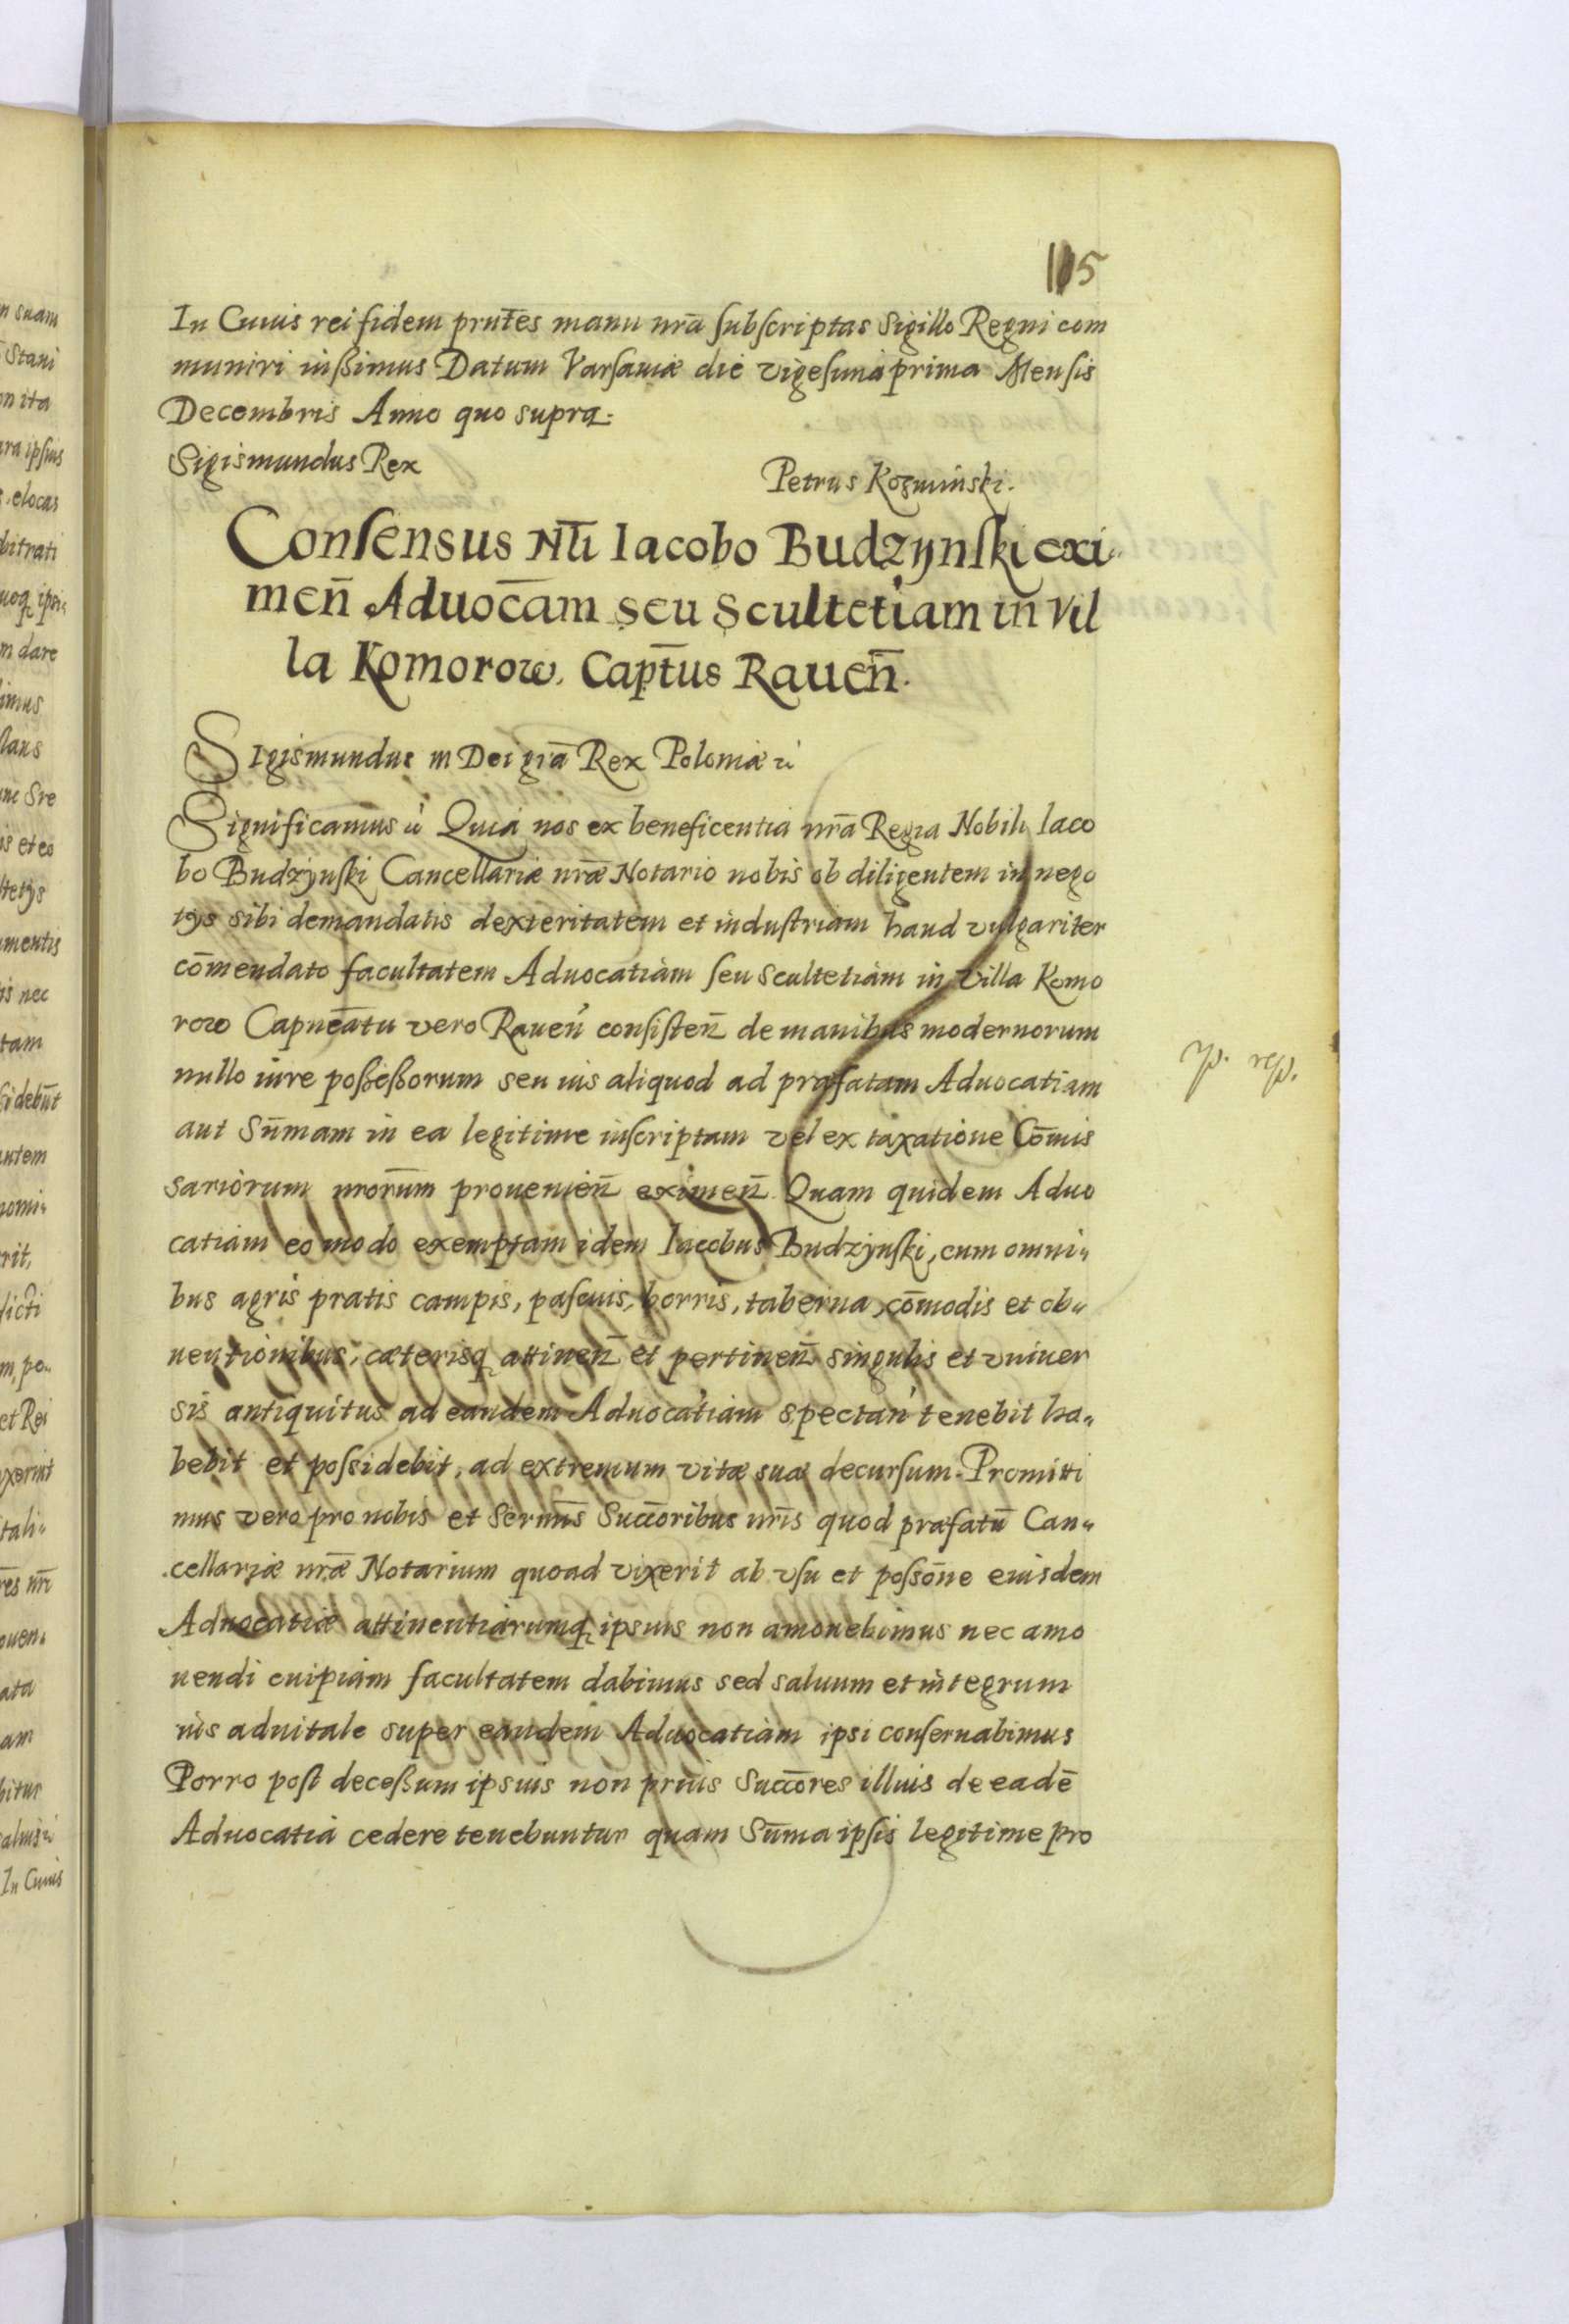 115
In Cuius rei fidem prnt̄es manu nrā subscriptas Sigillo Regni com
muniri iußimus Datum Varsauiæ die vigesima prima Mensis
Decembris Anno quo supra.
Sigismundus Rex
Petrus Kozminski.
Consensus Nli̅ Iacobo Budzÿnski exi„
men̄ Aduoc̄am seu Scultetiam in Vil
la Komorow. Capt̄us Rauen̄.
Sigismundus III Dei grā Rex Poloniæ
Significamus Quia nos ex beneficentia nrā Regia Nobili Iaco
bo Budzÿnski Cancellariæ nrǣ Notario nobis ob diligentem in nego
tÿs sibi demandatis dexteritatem et industriam haud vulgariter
com̄endato facultatem Aduocatiam seu Scultetiam in Villa Komo
row Capnēatu vero Rauen̄ consisten̄ de manibus modernorum
nullo iure poßeßorum seu ius aliquod ad præfatam Aduocatiam
aut Sūmam in ea legitime inscriptam vel ex taxatione Cōmis
sariorum nrorūm prouenien̄ eximen̄ Quam quidem Aduo
catiam eo modo exemptam idem Iacobus Budzÿnski, cum omni„
bus agris pratis campis, pascuis, horris, taberna, cōmodis et ob„
uentionibus, cæterisq̨ attinen̄ et pertinen̄ singulis et vniuer
sis antiquitus ad eandem Aduocatiam spectan̄ tenebit ha„
bebit et possidebit, ad extremum vitæ suæ decursum. Promitti
mus vero pro nobis et Sermīs Succ̄oribus nrīs quod præfatū Can„
cellariæ nrǣ Notarium quoad vixerit ab vsu et possōne eiusdem
Aduocatiæ attinentiarumq̨ ipsius non amouebimus nec amo
uendi cuipiam facultatem dabimus sed saluum et integrum
ius aduitale super eandem Aduocatiam ipsi conseruabimus
Porro post deceßum ipsius non prius Succ̄ores illius de eadē
Aduocatia cedere tenebuntur quam Sūma ipsis legitime pro